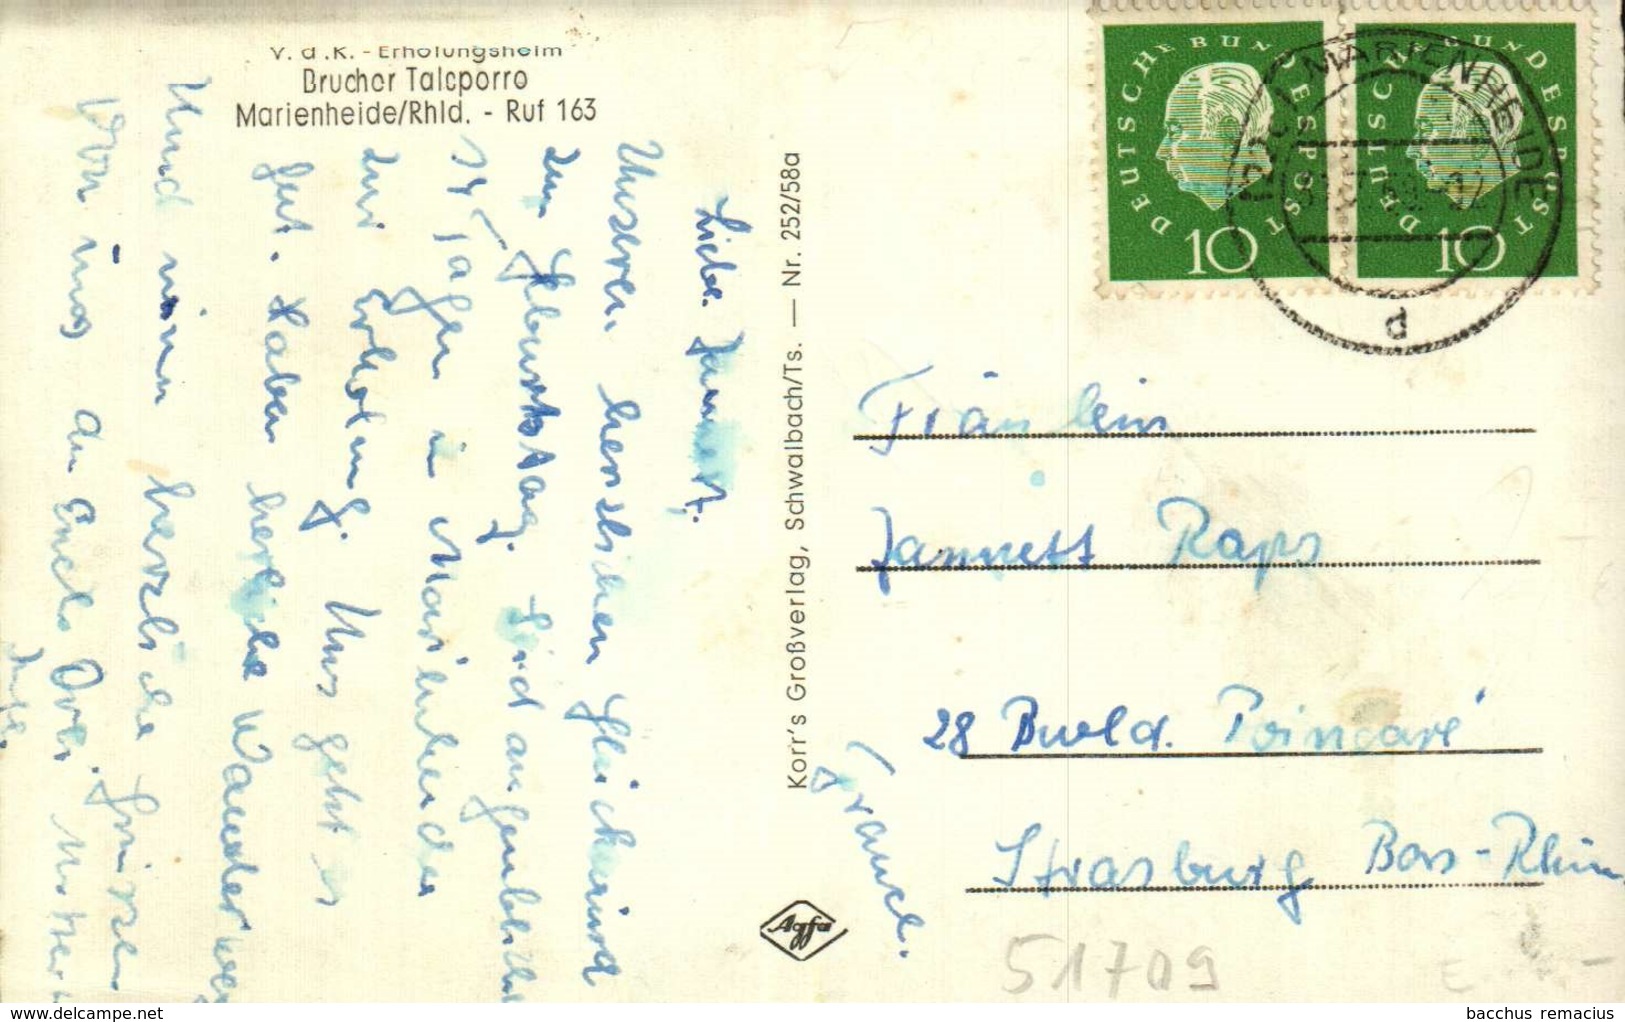 V.d.K. - Erholungsheim
Brucher Talsperre
Marienheide/Rhld. - Ruf 163
Liebe Jannett.
Unseren herzlichen Glückwunsch
zum Geburtstag. Sind augenblicklich
14 Tagen in Marienheide
zur Erholung. Uns geht es
gut. Haben herrliche Wander
Und nun herzliche Grüsse
von uns an Euch
Korr's Großverlag, Schwalbach/Ts. — Nr. 252/58a
Agfa
DEUTSCHE BUNDESPOST
10
DEUTSCHE BUNDESPOST
10
MARIENHEIDE
d
Fräulein
Jannett Raps
28 Buvld. Poincaré
Strasburg Bas-Rhin
France.
51709
www.delcampe.net
bacchus remacius